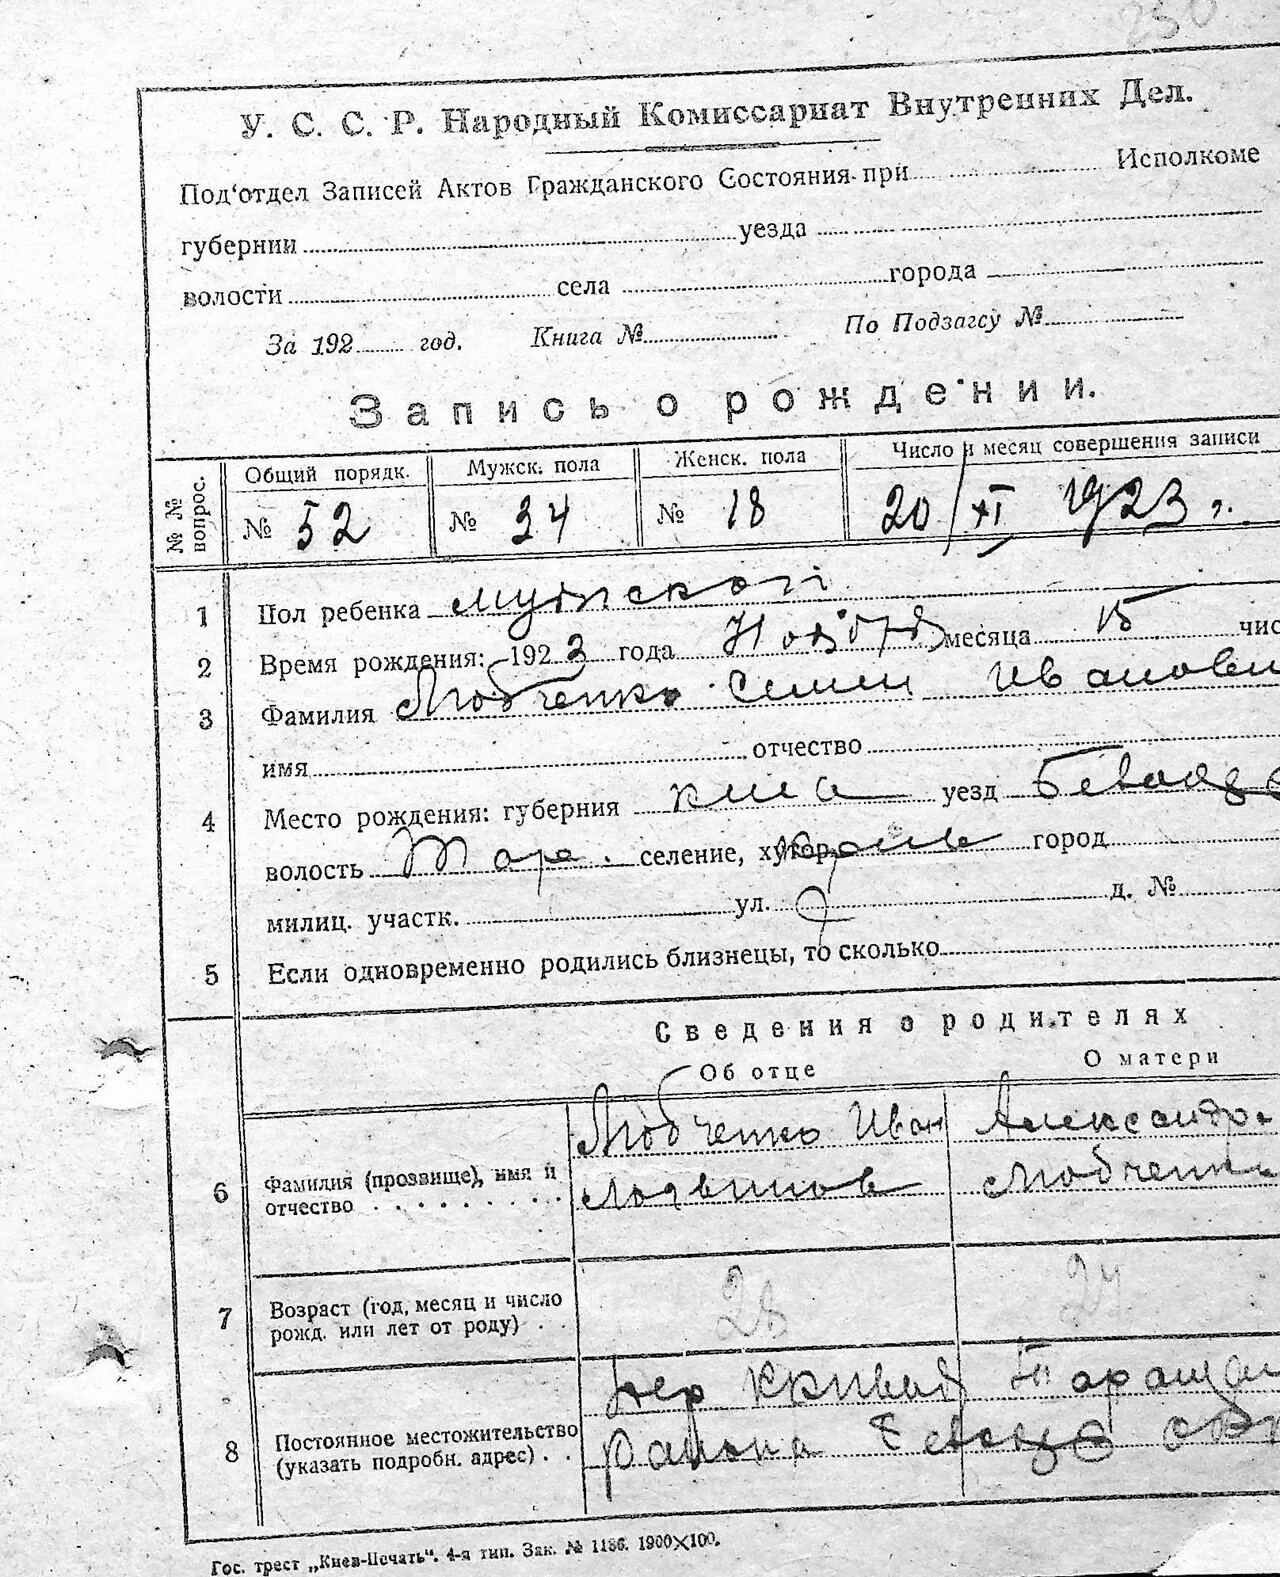 250
У. С. С. Р. Народный Комиссариат Внутренних Дел.
Под‘отдел Записей Актов Гражданского Состояния при Исполкоме
губернии уезда
волости села города
За 192 год. Книга № По Подзагсу №
Запись о рождении.
№ № вопрос. Общий порядк. Мужск. пола Женск. пола Число и месяц совершения записи
№ 52 № 34 № 18 20/XI 1923 г.
1 Пол ребенка мужской
2 Время рождения: 1923 года Ноября месяца 15 чис
3 Фамилия Любченко Семен Иванови
имя отчество
4 Место рождения: губерния уезд
волость Тара. селение, хутор город
милиц. участк. ул. д. №
5 Если одновременно родились близнецы, то сколько
Сведения о родителях
Об отце О матери
6 Фамилия (прозвище), имя и отчество Любченко Иван Александра
Любченко
7 Возраст (год, месяц и число рожд. или лет от роду) 28 24
8 Постоянное местожительство (указать подробн. адрес) Таращан
района
Гос. трест „Киев-Печать“. 4-я тип. Зак. № 1186. 1900×100.